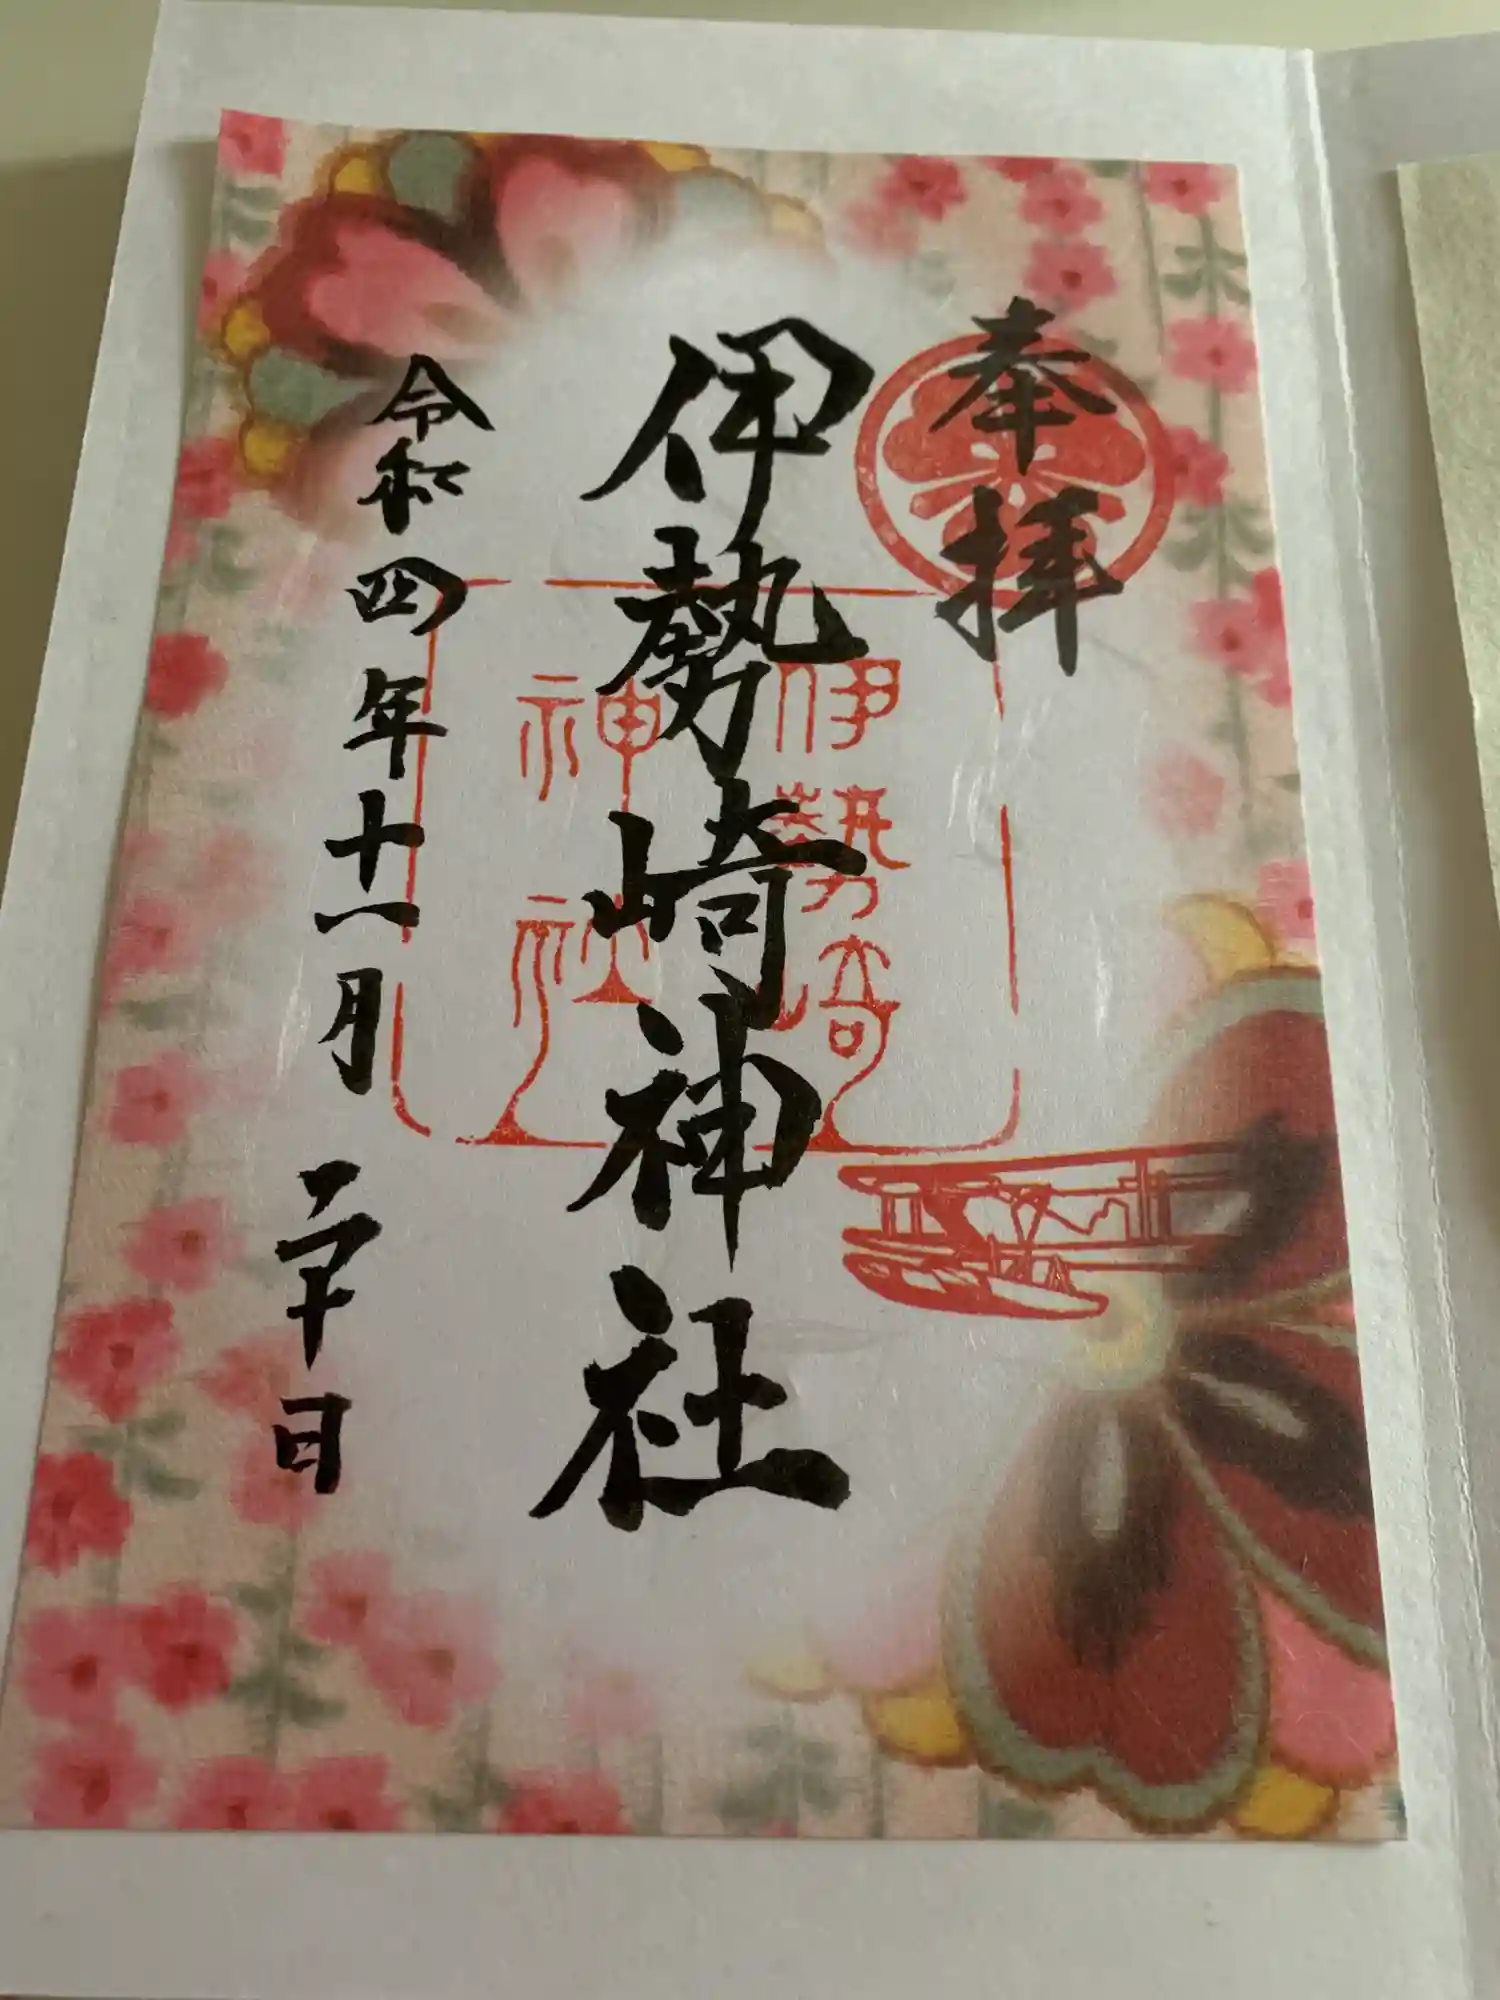 奉拝
伊勢崎神社
伊勢崎
神社
令和四年十一月二十日